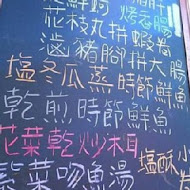 花枝丸拼蝦卷
滷豬腳拼大腸
塩冬瓜蒸時節鮮魚
乾煎時節鮮魚
花菜乾炒木耳
紫菜吻魚湯
塩酥小